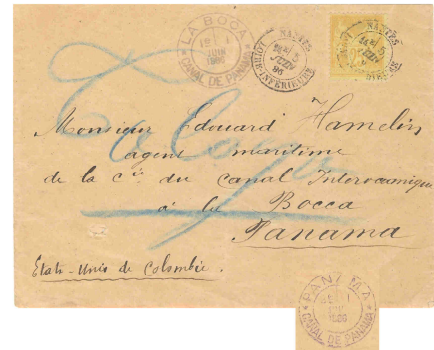 LA BOCA
JUIN
CANAL DE PANAMA
NANTES
86
LOIRE-INFERIEURE
NANTES
Monsieur Edouard Hamelin
agent maritime
de la Cie. du canal Interocéanique
à la Bocca
Panama
Etats-Unis de Colombie.
PANAMA
CANAL DE PANAMA